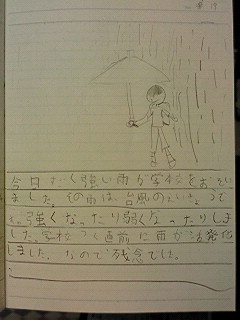 今日すごく強い雨が学校をおそい
ました。その雨は、台風のえいきょうで
、強くなったり弱くなったりしま
した。学校つく直前に雨が活発化
しました。なので残念でした。